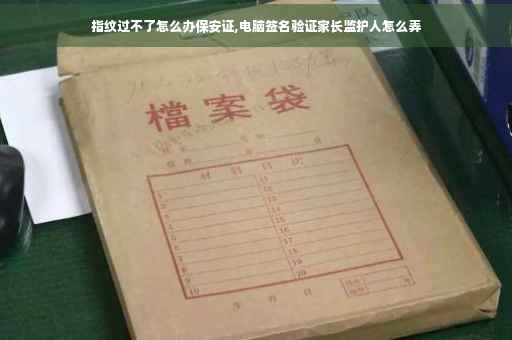 指纹过不了怎么办保安证,电脑签名验证家长监护人怎么弄
檔案袋
材料目次
1
2
3
4
5
6
7
8
9
10
11
12
13
14
15
16
17
18
19
20
年月日